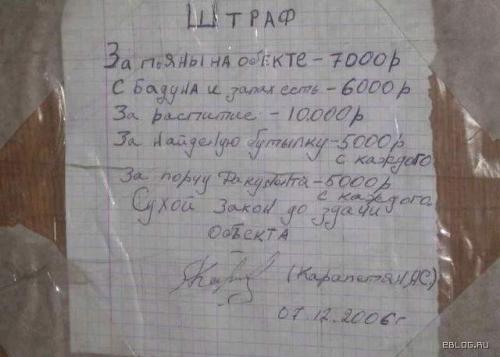 ШТРАФ
За пьяны на обекте - 7000р
С бадуна и запах есть - 6000р
За распитие - 10.000р
За найденую бутылку - 5000р
с каждого
За порчу дакумента - 5000р
с каждого
Сухой закон до здачи
обьекта
(Карапетян АС)
07.12.2006г
EBLOG.RU